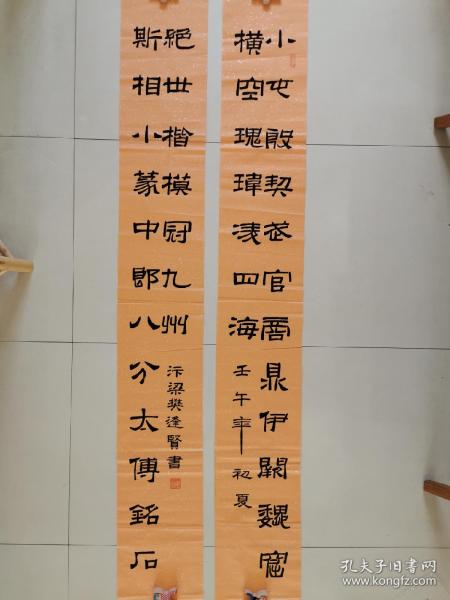 小屯殷契武官商鼎伊闕魏窟
橫空瑰瑋淩四海
壬午年初夏
斯相小篆中郎八分太傅銘石
絕世楷模冠九州
汴梁樊逢賢書
孔夫子旧书网
www.kongfz.com